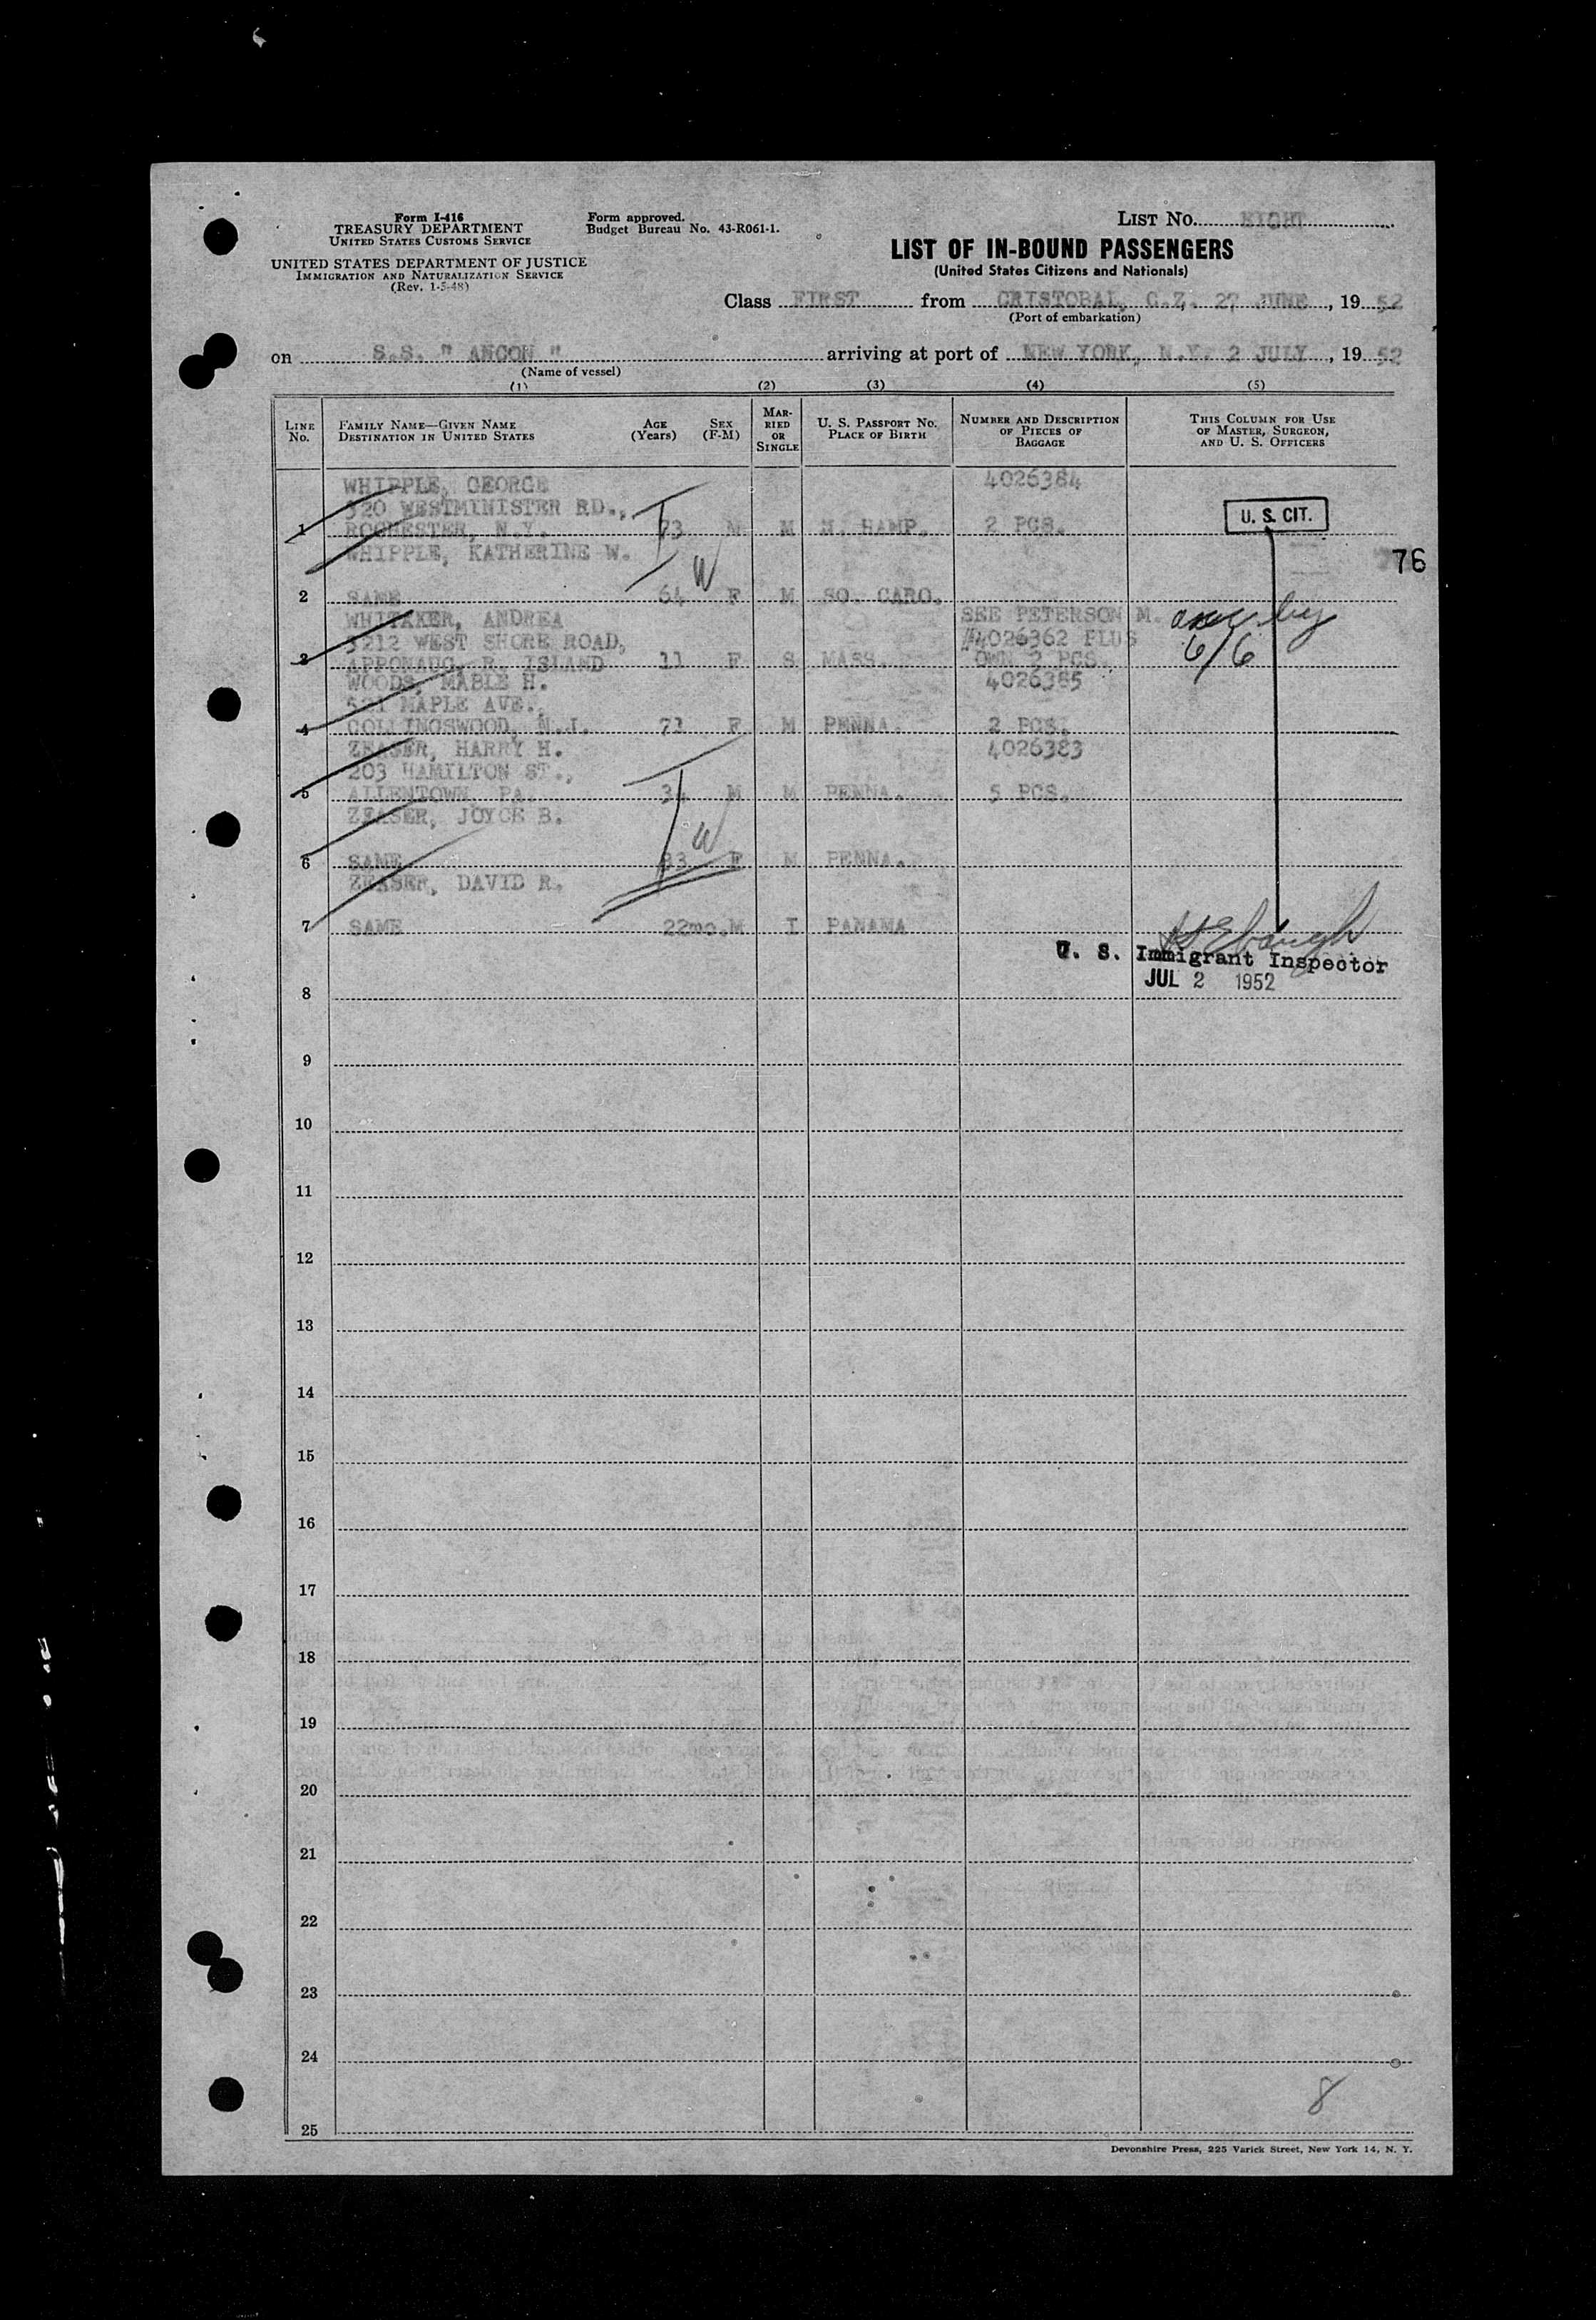 Form I-416
TREASURY DEPARTMENT
UNITED STATES CUSTOMS SERVICE
UNITED STATES DEPARTMENT OF JUSTICE
IMMIGRATION AND NATURALIZATION SERVICE
(Rev. 1-5-48)
Form approved.
Budget Bureau No. 43-R061-1.
LIST No. EIGHT
LIST OF IN-BOUND PASSENGERS
(United States Citizens and Nationals)
Class FIRST from CRISTOBAL, C.Z. 27 JUNE, 19 52
(Port of embarkation)
on S.S. " ANCON " arriving at port of NEW YORK, N.Y. 2 JULY, 19 52
(Name of vessel)
(1) (2) (3) (4) (5)
LINE No. FAMILY NAME—GIVEN NAME DESTINATION IN UNITED STATES AGE (Years) SEX (F-M) MARRIED OR SINGLE U. S. PASSPORT No. PLACE OF BIRTH NUMBER AND DESCRIPTION OF PIECES OF BAGGAGE THIS COLUMN FOR USE OF MASTER, SURGEON, AND U. S. OFFICERS
WHIPPLE, GEORGE 4026384
320 WESTMINISTER RD.,
1 ROCHESTER, N.Y. 73 M M N. HAMP. 2 PCS. U. S. CIT.
WHIPPLE, KATHERINE W.
76
W
2 SAME 64 F M SO. CARO.
WHITAKER, ANDREA SEE PETERSON M.
3212 WEST SHORE ROAD, #4026362 PLUS
3 APPONAUG, R. ISLAND 11 F S MASS. OWN 2 PCS. 6/6
WOODS, MABLE H. 4026385
521 MAPLE AVE.,
4 COLLINGSWOOD, N.J. 73 F M PENNA. 2 PCS.
ZEASER, HARRY H. 4026383
203 HAMILTON ST.,
5 ALLENTOWN, PA. 34 M M PENNA. 5 PCS.
ZEASER, JOYCE B.
W
6 SAME 33 F M PENNA.
ZEASER, DAVID R.
7 SAME 22mo. M I PANAMA
U. S. Immigrant Inspector
JUL 2 1952
8
9
10
11
12
13
14
15
16
17
18
19
20
21
22
23
24
8
25
Devonshire Press, 225 Varick Street, New York 14, N. Y.